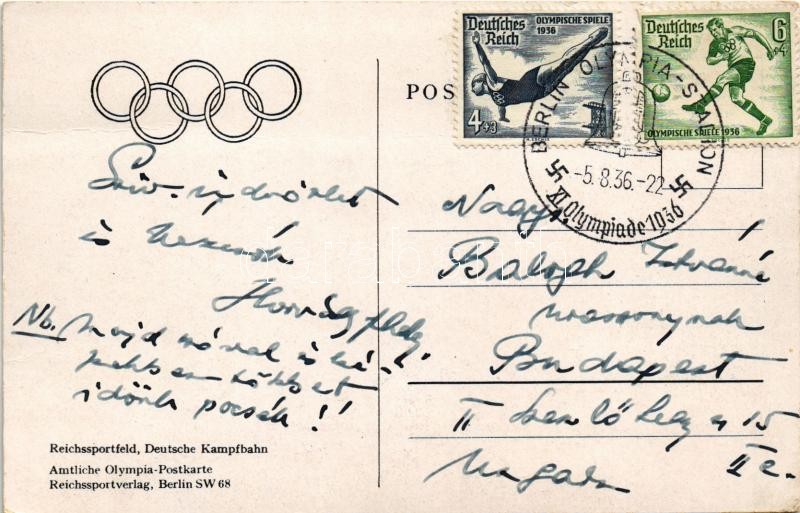 POS
Deutsches Reich
OLYMPISCHE SPIELE 1936
4+3
Deutsches Reich
6+4
OLYMPISCHE SPIELE 1936
BERLIN OLYMPIA-STADION
-5.8.36.-22
XI. Olympiade 1936
Szív. üdvözlet
és kezcsók
Nb. Majd szóval is
többet
időnk pocsék!!
Nagys.
Balogh Istvánné
urasszonynak
Budapest
II
15
Ungarn
Reichssportfeld, Deutsche Kampfbahn
Amtliche Olympia-Postkarte
Reichssportverlag, Berlin SW 68